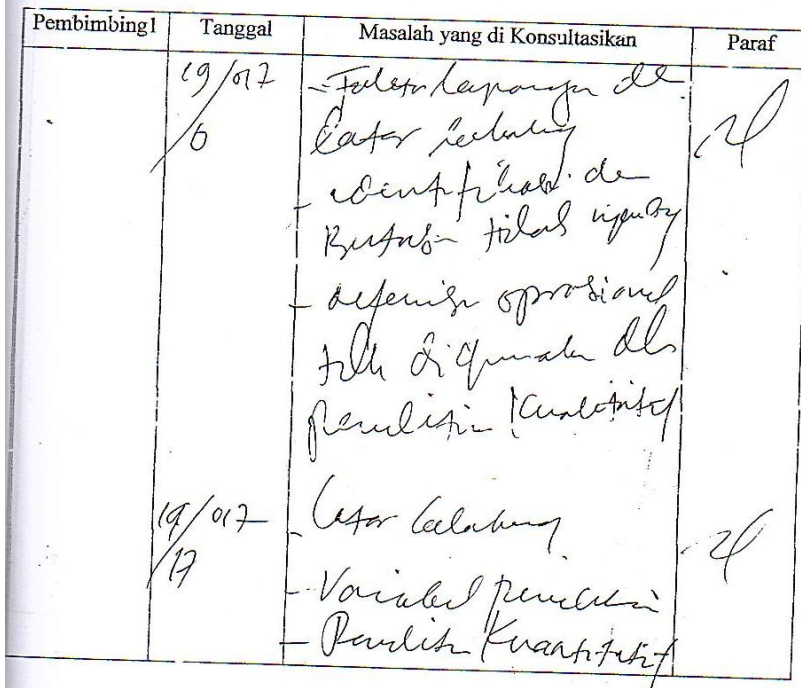 Pembimbing1 Tanggal Masalah yang di Konsultasikan Paraf
19/017 - Fakta lapangan di
/6 Latar belakang
- identifikasi dan
Batasan tidak
- defenisi oprasional
tdk digunakan dlm
penelitian Kualitatif
19/017 - Latar belakang
/17
- Variabel penelitian
- Penelitian Kuantitatif